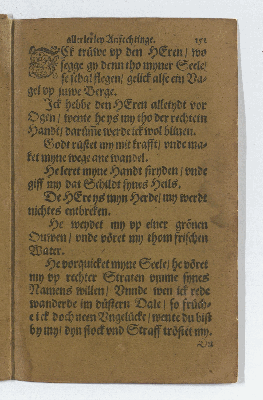 allerley Anfechtinge. 151
ICk trüwe vp den HEren/ wo
segge gy denn tho myner Seele/
se schal flegen/ gelick alse ein Va-
gel vp juwe Berge.
Ick hebbe den HEren alletydt vor
Ogen/ wente he ys my tho der rechtein
Handt/ darümme werde ick wol bliuen.
Godt rüstet my mit krafft/ vnde ma-
ket myne wege ane wandel.
He leret myne Handt stryden/ vnde
gifft my dat Schildt synes Heils.
De HEre ys myn Herde/ my werdt
nichtes entbreken.
He weydet my vp einer grönen
Ouwen/ vnde vöret my thom frischen
Water.
He vorquicket myne Seele/ he vöret
my vp rechter Straten vmme synes
Namens willen/ Vnde wen ick rede
wanderde im düstern Dale/ so früch-
te ick doch neen Vngelücke/ wente du bist
by my/ dyn stock vnd Staff tröstet my.